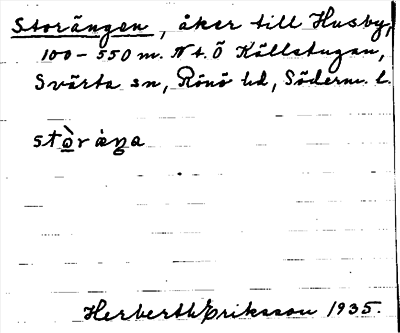 Storängen, åker till Husby,
100-550 m. N t. Ö Källstugan,
Svärta sn, Rönö hd, Söderm. l.
stòräŋa
Herberth Eriksson 1935.